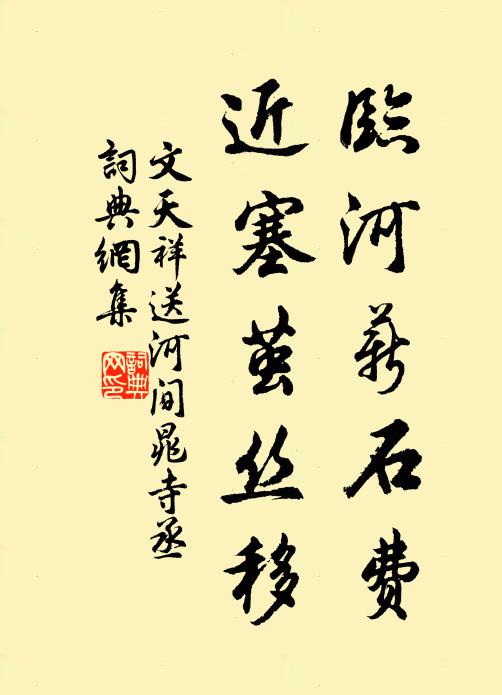 臨河薪石費
近塞茧丝移
文天祥送河间晁寺丞
詞典網集
詞典網印